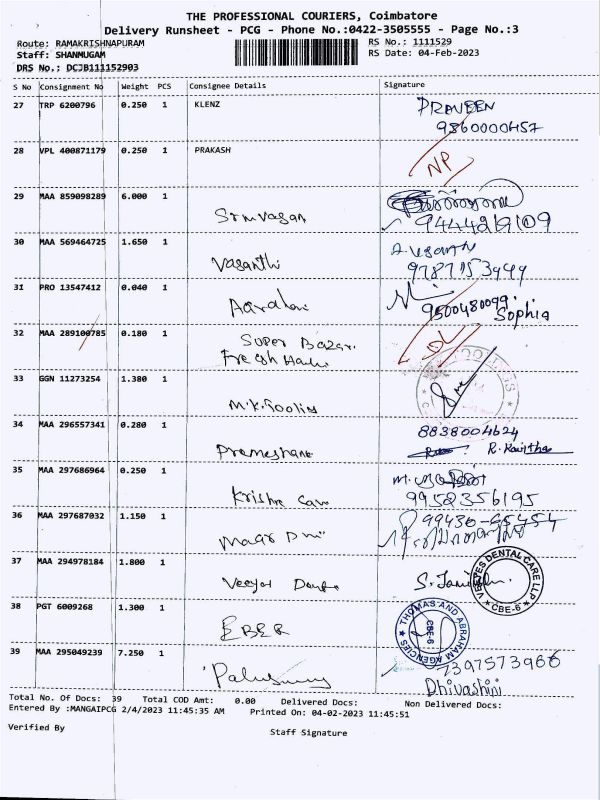 THE PROFESSIONAL COURIERS, Coimbatore
Delivery Runsheet - PCG - Phone No.:0422-3505555 - Page No.:3
Route: RAMAKRISHNAPURAM RS No.: 1111529
Staff: SHANMUGAM RS Date: 04-Feb-2023
DRS No.: DCJB111152903
S No Consignment No Weight PCS Consignee Details Signature
27 TRP 6200796 0.250 1 KLENZ PRAVEEN
9860000457
28 VPL 400871179 0.250 1 PRAKASH NP
29 MAA 859098289 6.000 1 Srinivasan
9444219109
30 MAA 569464725 1.650 1 Vasanthi A. Vasanth
9787153949
31 PRO 13547412 0.040 1 9500480099.
Sophia
32 MAA 289100785 0.180 1 Super Bazar. DL
Fresh
33 GGN 11273254 1.380 1 M.K.Toolings
34 MAA 296557341 0.280 1 8838004624
R. Kavitha
35 MAA 297686964 0.250 1 Krishna
9952356195
36 MAA 297687032 1.150 1 99430-95454
37 MAA 294978184 1.800 1 S. VEEYES DENTAL CARE LLP * CBE-6 *
38 PGT 6009268 1.300 1 EBER THOMAS AND ABRAHAM AGENCIES CBE-6
39 MAA 295049239 7.250 1 7397573966
Dhivashini
Total No. Of Docs: 39 Total COD Amt: 0.00 Delivered Docs: Non Delivered Docs:
Entered By :MANGAIPCG 2/4/2023 11:45:35 AM Printed On: 04-02-2023 11:45:51
Verified By Staff Signature